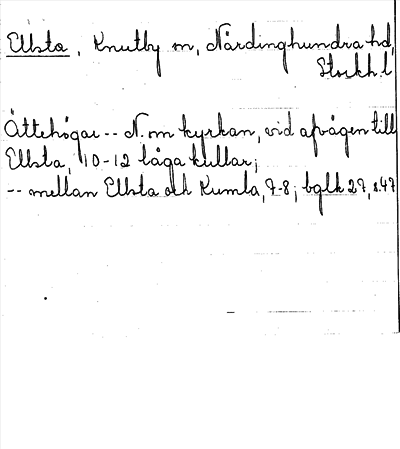 Ellsta, Knutby sn, Närdinghundra hd,
Stockh. l
Ättehögar -- N. om kyrkan, vid afvägen till
Ellsta, 10-12 låga kullar;
-- mellan Ellsta och Kumla, 7-8; bglk 27, s. 47